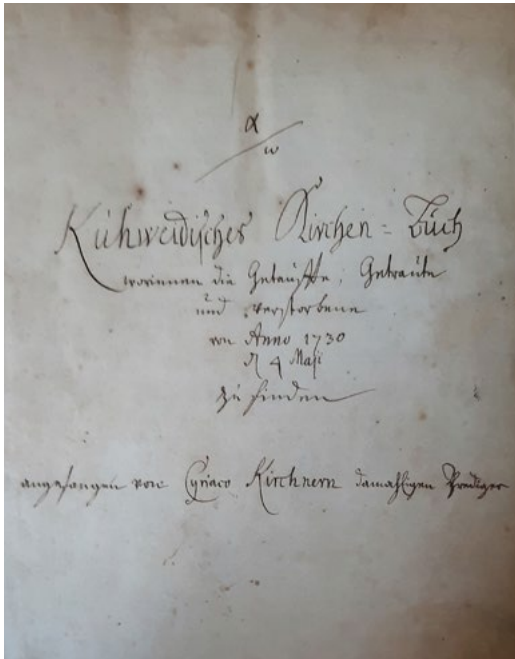 α
ω
Kühweidisches Kirchen = Buch
worinnen die Getauffte, Getraute
und verstorbene
von Anno 1730
d 4 Maji
zu finden
angefangen von Cyriaco Kirchnern damahligen Prediger